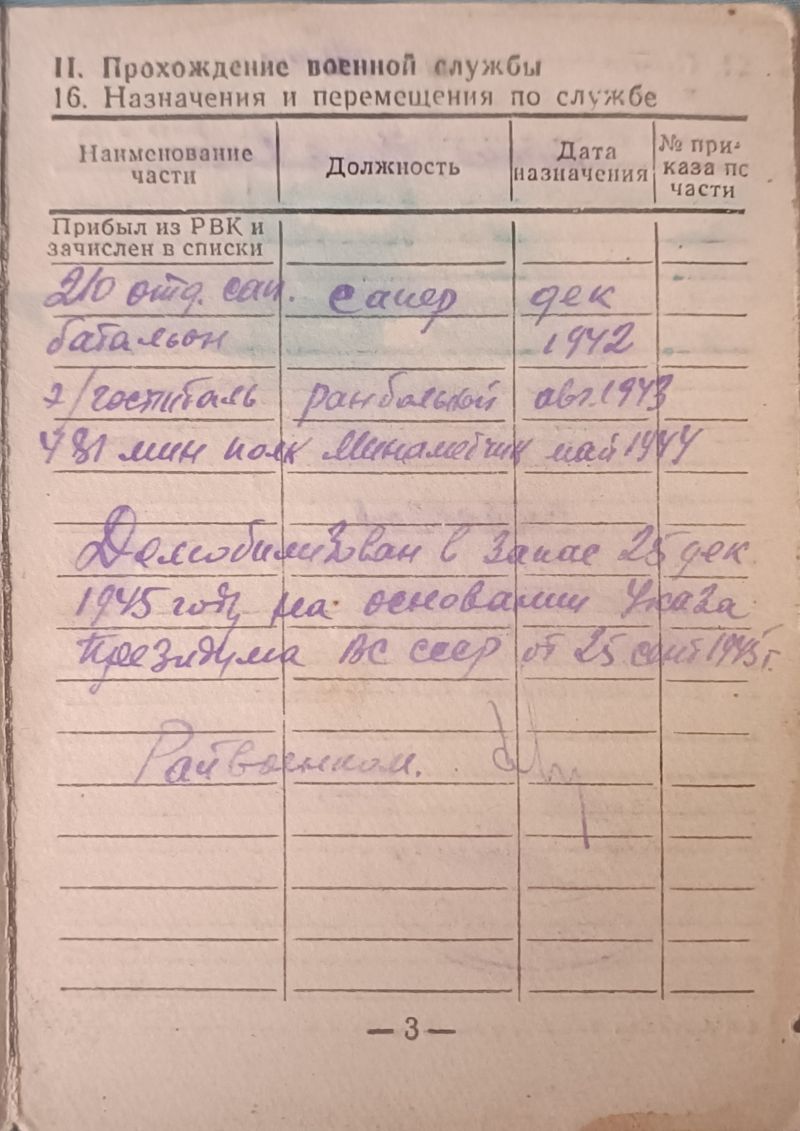 II. Прохождение военной службы
16. Назначения и перемещения по службе
Наименование части
Должность
Дата назначения
№ приказа по части
Прибыл из РВК и
зачислен в списки
210 отд. сап. сапер дек
батальон 1942
э/госпиталь ранбольной авг. 1943
481 мин полк Минаметчик май 1944
Демобилизован в запас 25 дек
1945 году на основании Указа
Президиума ВС СССР от 25 сент 1945 г.
Райвоенком.
— 3 —